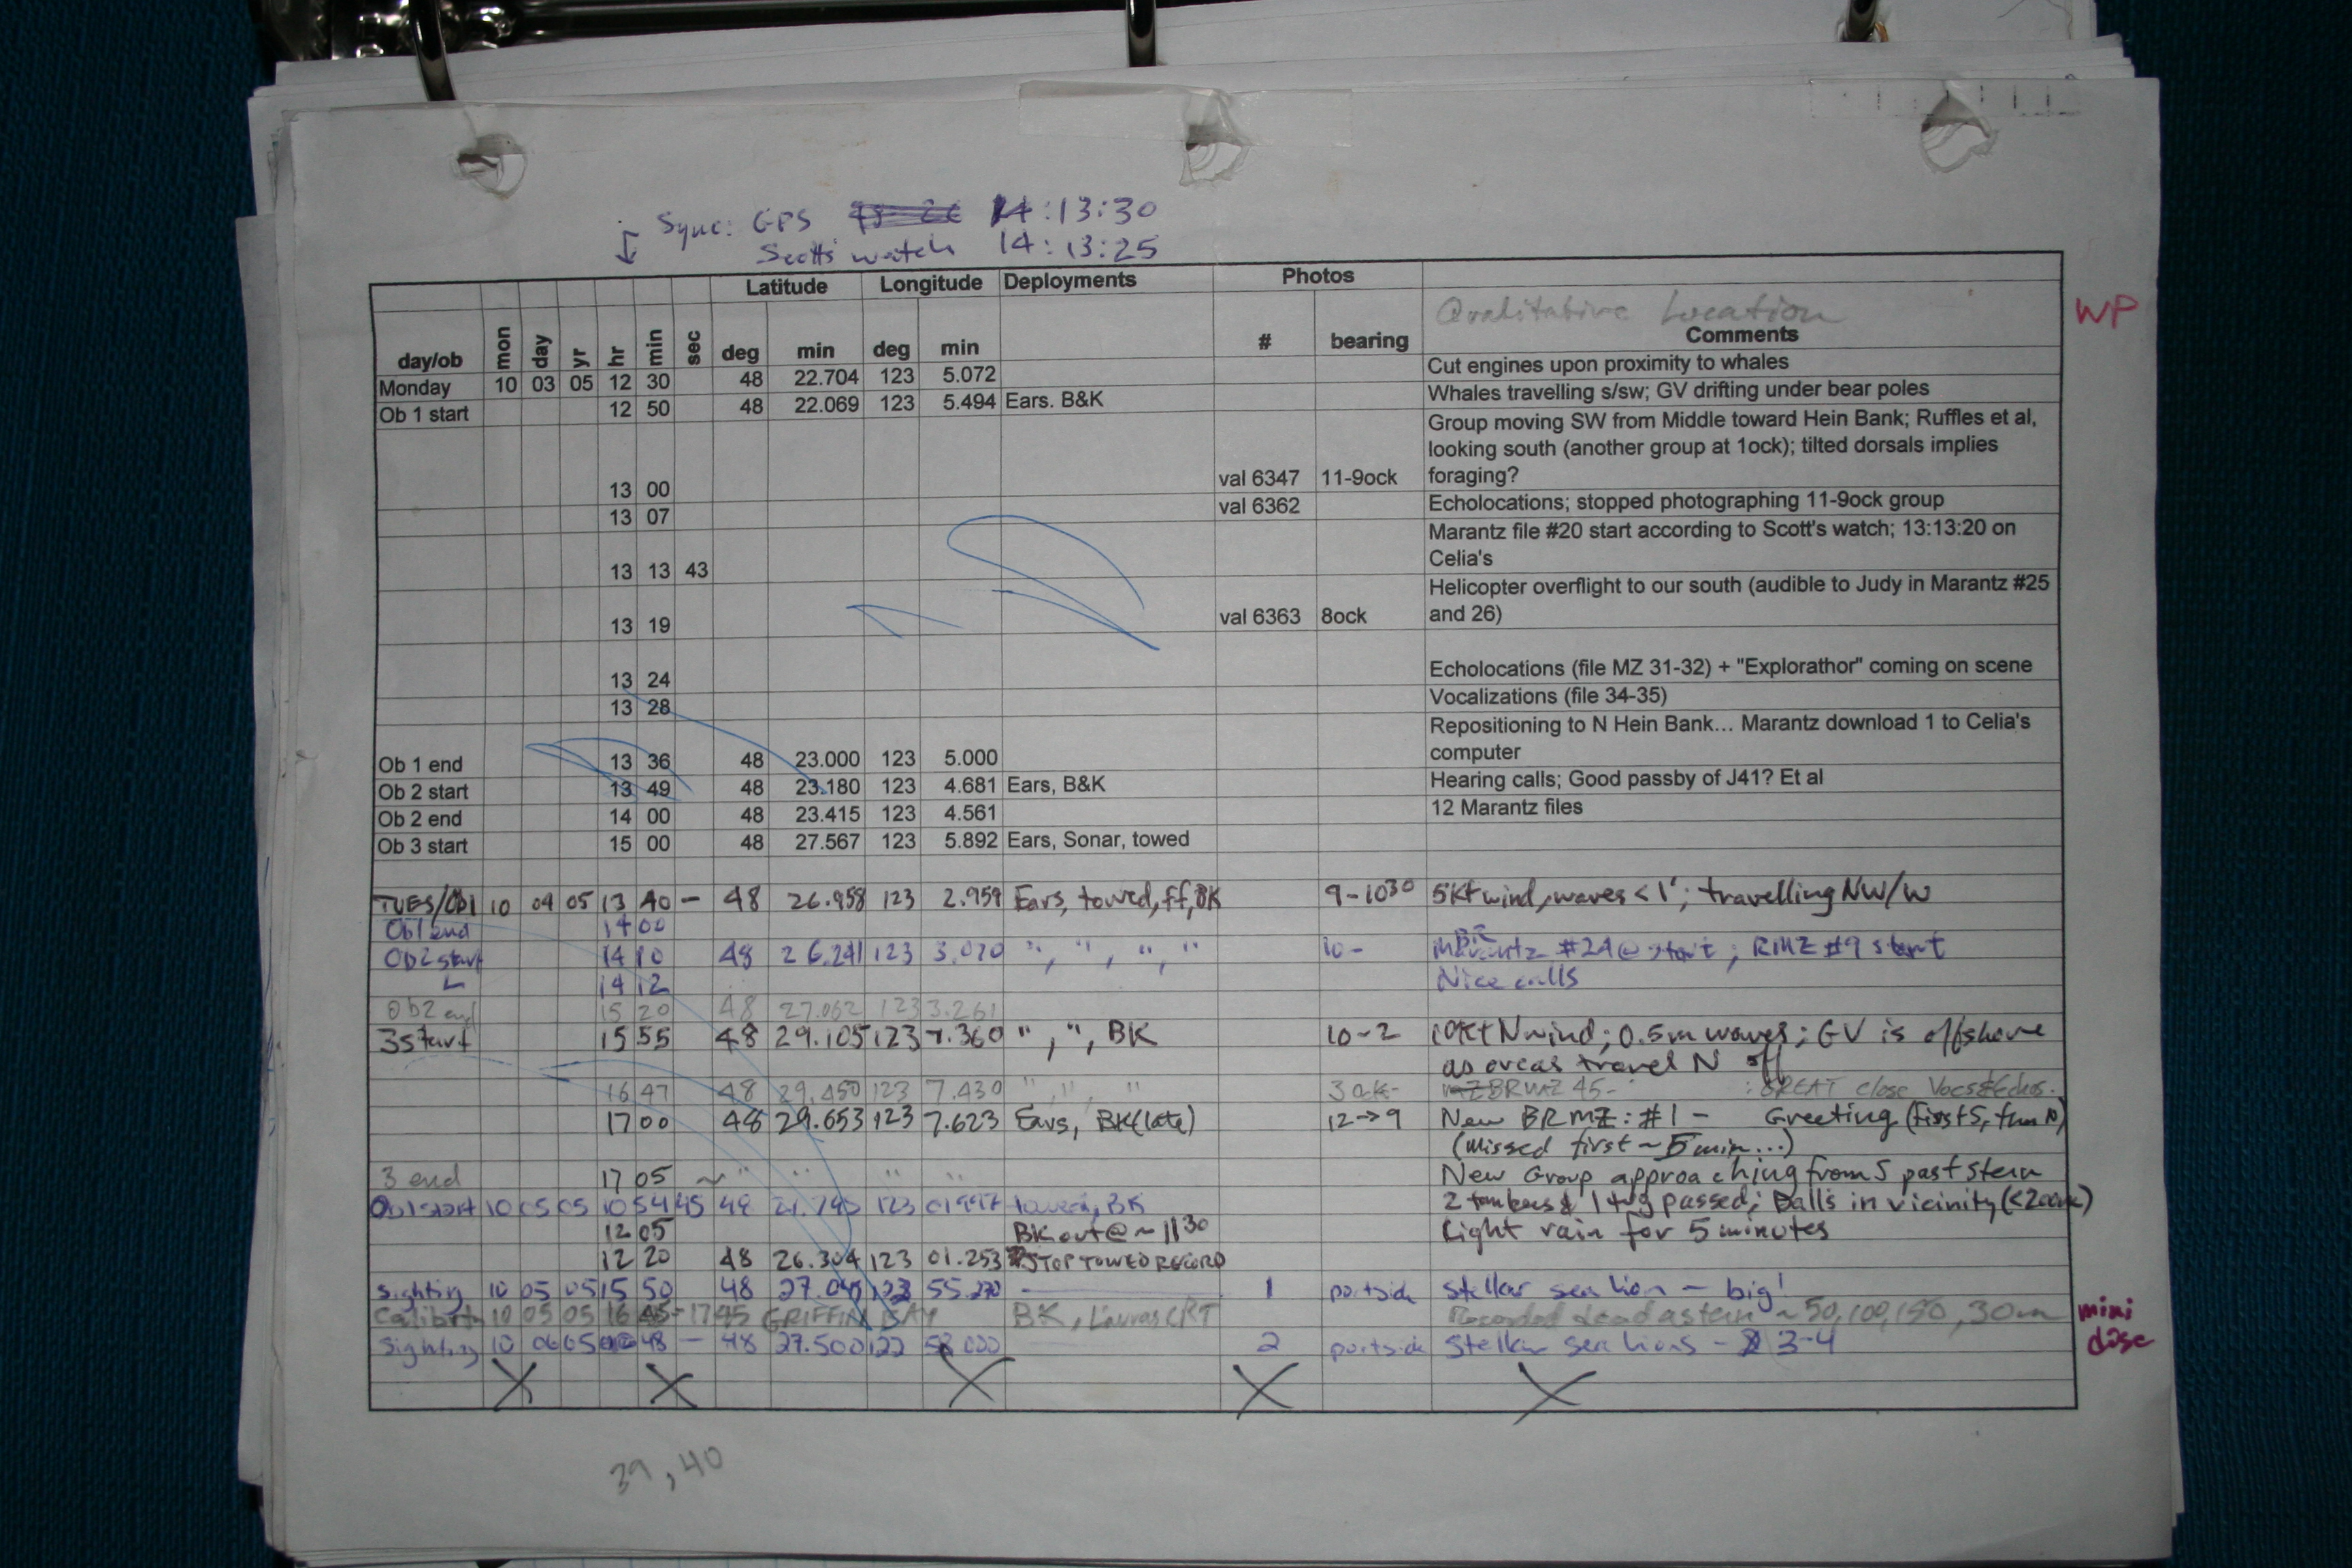 Sync: GPS 14:13:30
Scotts watch 14:13:25
Latitude Longitude Deployments Photos
Qualitative Location
WP
day/ob mon day yr hr min sec deg min deg min # bearing Comments
Monday 10 03 05 12 30 48 22.704 123 5.072 Cut engines upon proximity to whales
Ob 1 start 12 50 48 22.069 123 5.494 Ears. B&K Whales travelling s/sw; GV drifting under bear poles
Group moving SW from Middle toward Hein Bank; Ruffles et al,
looking south (another group at 1ock); tilted dorsals implies
13 00 val 6347 11-9ock foraging?
13 07 val 6362 Echolocations; stopped photographing 11-9ock group
Marantz file #20 start according to Scott's watch; 13:13:20 on
13 13 43 Celia's
Helicopter overflight to our south (audible to Judy in Marantz #25
13 19 val 6363 8ock and 26)
13 24 Echolocations (file MZ 31-32) + "Explorathor" coming on scene
13 28 Vocalizations (file 34-35)
Repositioning to N Hein Bank... Marantz download 1 to Celia's
Ob 1 end 13 36 48 23.000 123 5.000 computer
Ob 2 start 13 49 48 23.180 123 4.681 Ears, B&K Hearing calls; Good passby of J41? Et al
Ob 2 end 14 00 48 23.415 123 4.561 12 Marantz files
Ob 3 start 15 00 48 27.567 123 5.892 Ears, Sonar, towed
TUES/OB1 10 04 05 13 40 - 48 26.958 123 2.959 Ears, towed, ff, BK 9-10³⁰ 5kt wind, waves < 1'; travelling NW/W
Ob1 end 14 00
Ob2 start 14 10 48 26.241 123 3.070 " , " , " , " 10- Marantz #24 @ start; RMZ #9 start
14 12 Nice calls
Ob2 end 15 20 48 27.062 123 3.261
3 Start 15 55 48 29.105 123 7.360 " , " , BK 10-2 10kt N wind; 0.5m waves; GV is offshore
as orcas travel N off
16 47 48 29.450 123 7.430 " " " BRMZ 45- : GREAT close Vocs & Echos.
17 00 48 29.653 123 7.623 Ears, BK (late) 12→9 New BRMZ: #1 - Greeting (first S, then N)
(missed first ~ 5 min...)
3 end 17 05 ~ " " " " New Group approaching from S past stern
Ob1 start 10 05 05 10 54 45 48 123 01.997 towed, BK 2 tankers & 1 tug passed; Balls in vicinity
12 05 BK out @ ~ 11³⁰ Light rain for 5 minutes
12 20 48 26.304 123 01.253 STOP TOWED RECORD
Sighting 10 05 05 15 50 48 — 1 portside Stellar sea lion - big!
10 05 05 16 45-17 45 GRIFFIN BAY BK, CRT Recorded astern ~ 50, 100, 150, 30m
mini disc
Sighting 10 06 05 48 — 48 27.500 122 2 portside Stellar sea lions - 3-4
39, 40